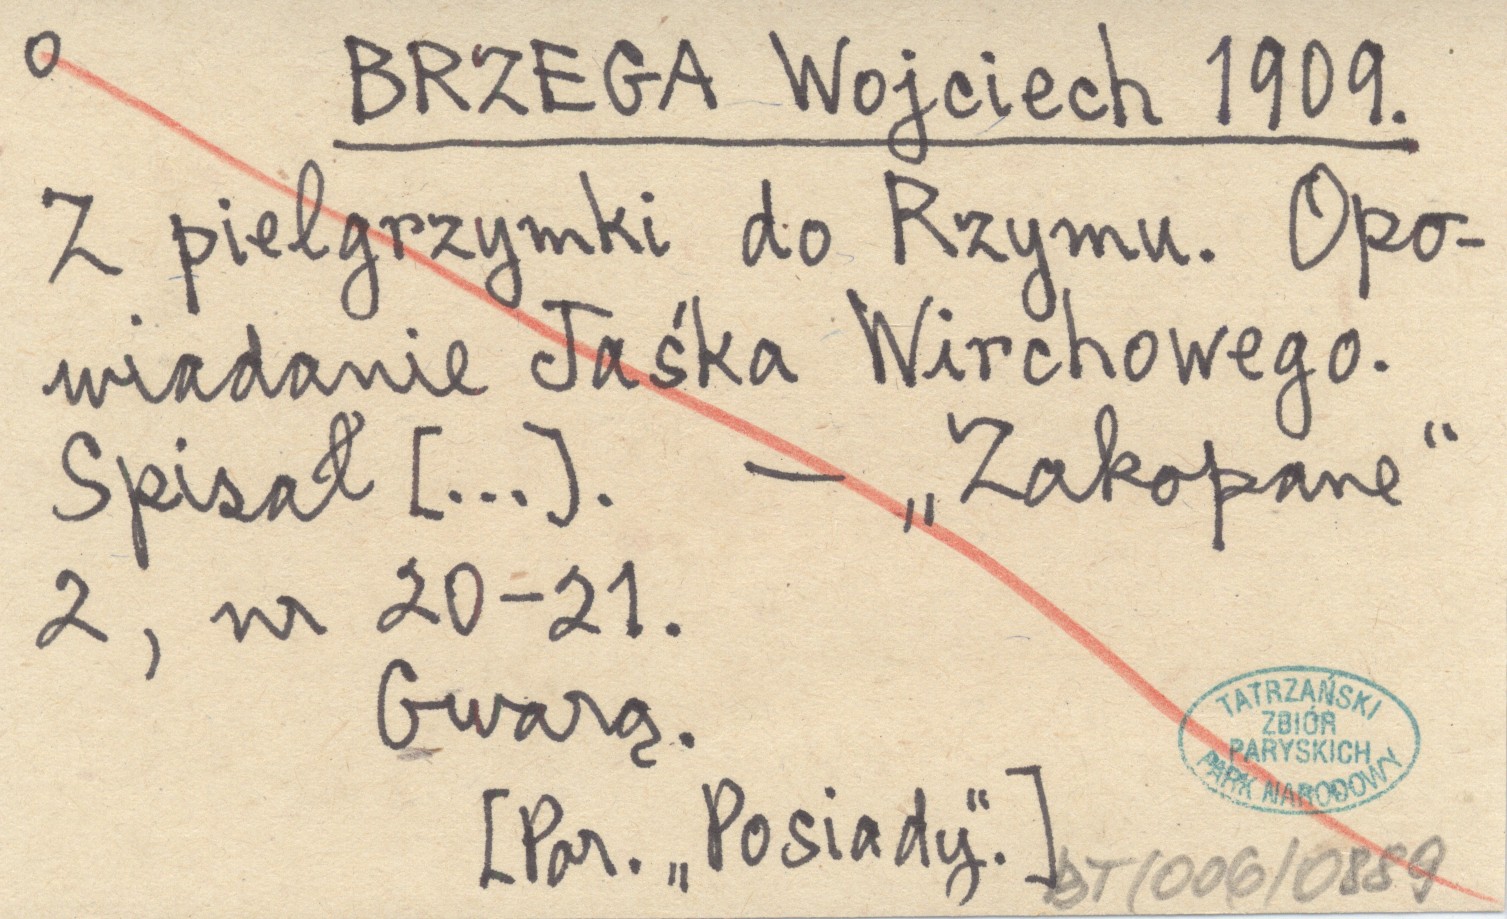 BRZEGA Wojciech 1909.
Z pielgrzymki do Rzymu. Opo-
wiadanie Jaśka Wirchowego.
Spisał [...]. — „Zakopane“
2, nr 20-21.
Gwarą.
[Par. „Posiady“.]
TATRZAŃSKI
ZBIÓR
PARYSKICH
PARK NARODOWY
BT/006/0889